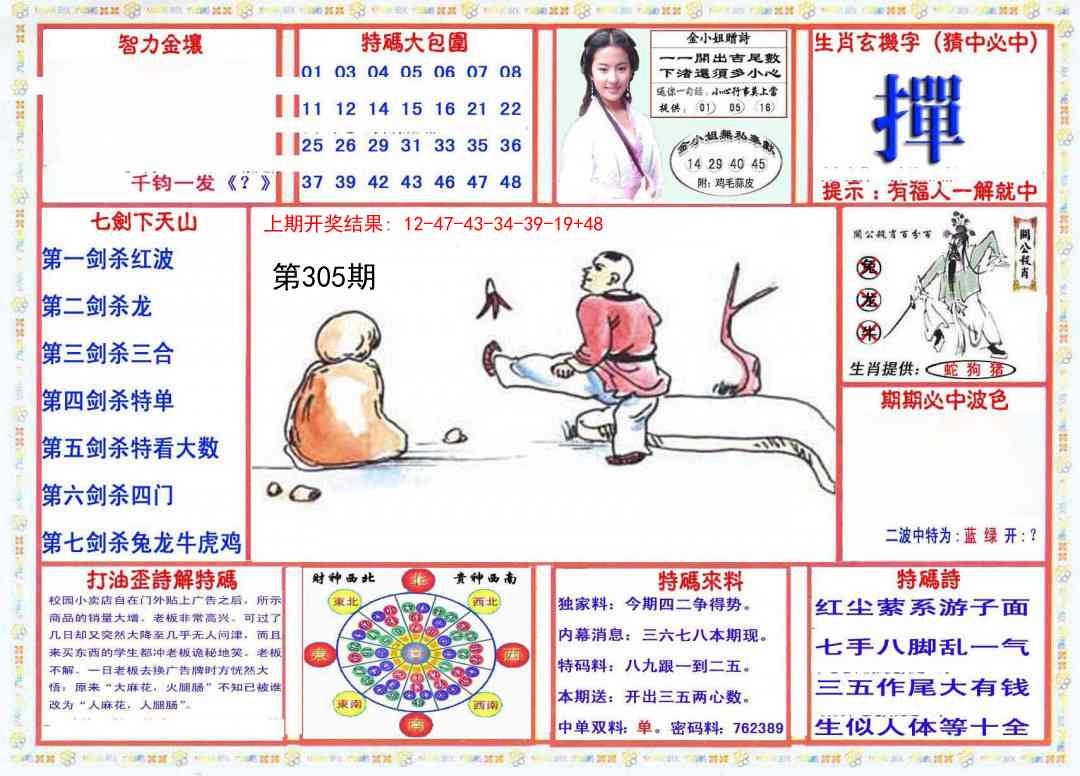 智力金壤
千钧一发《？》
特碼大包圍
01 03 04 05 06 07 08
11 12 14 15 16 21 22
25 26 29 31 33 35 36
37 39 42 43 46 47 48
金小姐贈詩
一一開出吉尾數
下渚還須多小心
送你一句话：小心行事莫上當
提供：(01) 05 (16)
金小姐無私奉獻
14 29 40 45
附：鸡毛蒜皮
生肖玄機字（猜中必中）
撣
提示：有福人一解就中
七劍下天山
第一剑杀红波
第二剑杀龙
第三剑杀三合
第四剑杀特单
第五剑杀特看大数
第六剑杀四门
第七剑杀兔龙牛虎鸡
上期开奖结果：12-47-43-34-39-19+48
第305期
關公殺肖百分百
關公殺肖
兔
龙
牛
生肖提供：蛇 狗 猪
期期必中波色
二波中特为：蓝 绿 开：？
打油歪詩解特碼
校园小卖店自在门外贴上广告之后，所示
商品的销量大增。老板非常高兴。可过了
几日却又突然大降至几乎无人问津，而且
来买东西的学生都冲老板诡秘地笑。老板
不解。一日老板去换广告牌时方恍然大
悟：原来“大麻花，火腿肠”不知已被谁
改为“人麻花，人腿肠”。
财神西北
贵神西南
北
東北
西北
東
西
東南
西南
南
特碼來料
独家料：今期四二争得势。
内幕消息：三六七八本期现。
特码料：八九跟一到二五。
本期送：开出三五两心数。
中单双料：单。密码料：762389
特碼詩
红尘萦系游子面
七手八脚乱一气
三五作尾大有钱
生似人体等十全